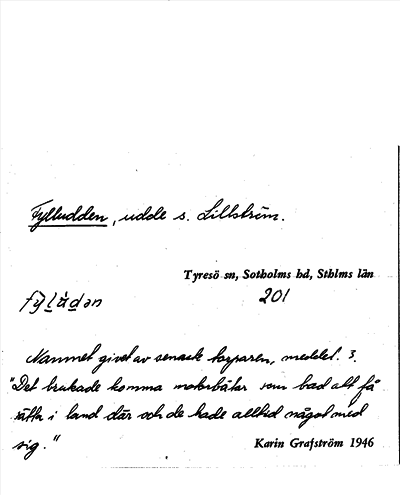 Fylludden, udde s. Lillström.
Tyresö sn, Sotholms hd, Sthlms län
201
Namnet givet av senaste torparen, meddel. 3.
"Det brukade komma motorbåtar som bad att få
sätta i land där och de hade alltid något med
sig."
Karin Grafström 1946